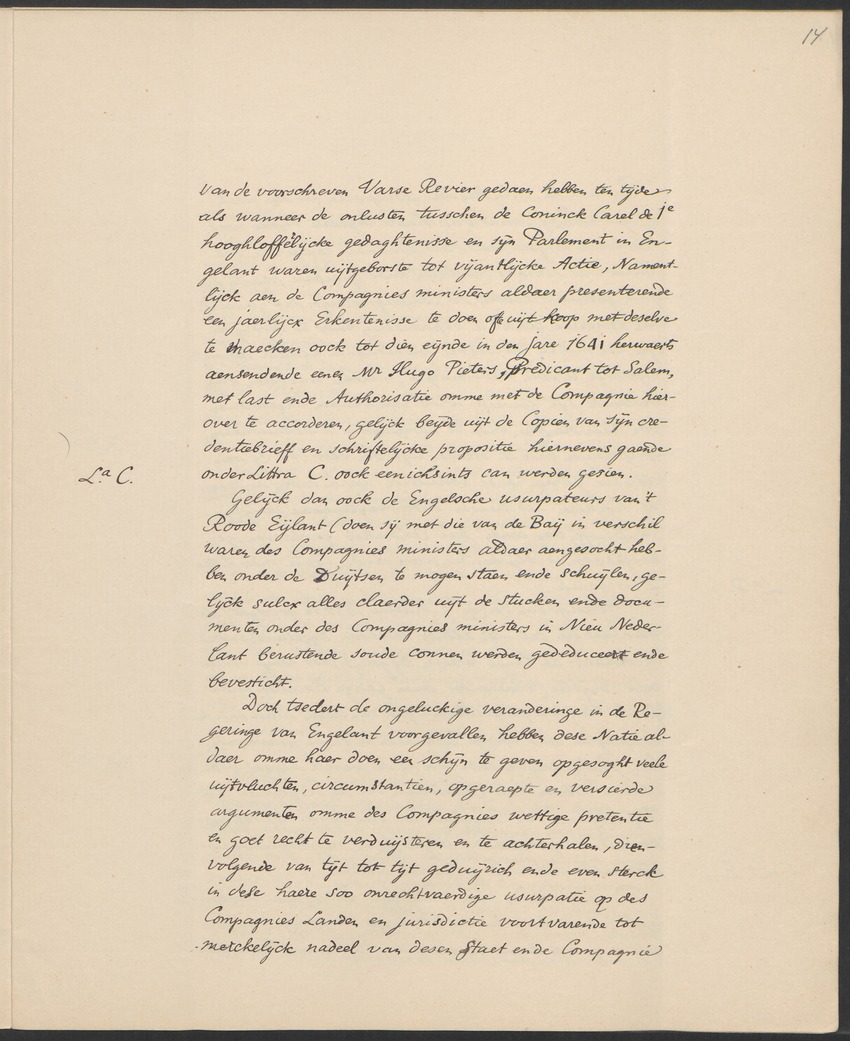 14
van de voorschreven Varse Revier gedaen hebben ten tijde
als wanneer de onlusten tusschen de Coninck Carel de 1e
hooghloffelijcke gedaghtenisse en sijn Parlement in En-
gelant waren uijtgeborste tot vijantlijcke Actie, Nament-
lijck aen de Compagnies ministers aldaer presenterende
een jaerlijcx Erkentenisse te doen ofte uijt koop met deselve
te maecken oock tot dien eijnde in den jare 1641 herwaerts
aensendende eenen Mr Hugo Pieters, Predicant tot Salem,
met last ende Authorisatie omme met de Compagnie hier-
over te accorderen, gelijck beijde uijt de Copien van sijn cre-
dentiebrieff en schriftelijcke propositie hiernevens gaende
La C.
onder Littra C. oock eenichsints can werden gesien.
Gelijck dan oock de Engelsche usurpateurs van't
Roode Eijlant (doen sij met die van de Baij in verschil
waren des Compagnies ministers aldaer aengesocht heb-
ben onder de Duijtsen te mogen staen ende schuijlen, ge-
lijck sulcx alles claerder uijt de stucken ende docu-
menten onder des Compagnies ministers in Nieu Neder-
lant berustende soude connen werden gededuceert ende
bevesticht.
Doch tsedert de ongeluckige veranderinge in de Re-
geringe van Engelant voorgevallen hebben dese Natie al-
daer omme haer doen een schijn te geven opgesoght veele
uijtvluchten, circumstantien, opgeraepte en versierde
argumenten omme des Compagnies wettige pretentie
en goet recht te verduijsteren en te achterhalen, dien-
volgende van tijt tot tijt geduijrich ende even sterck
in dese haere soo onrechtvaerdige usurpatie op des
Compagnies Landen en jurisdictie voortvarende tot
merckelijck nadeel van desen Staet ende Compagnie